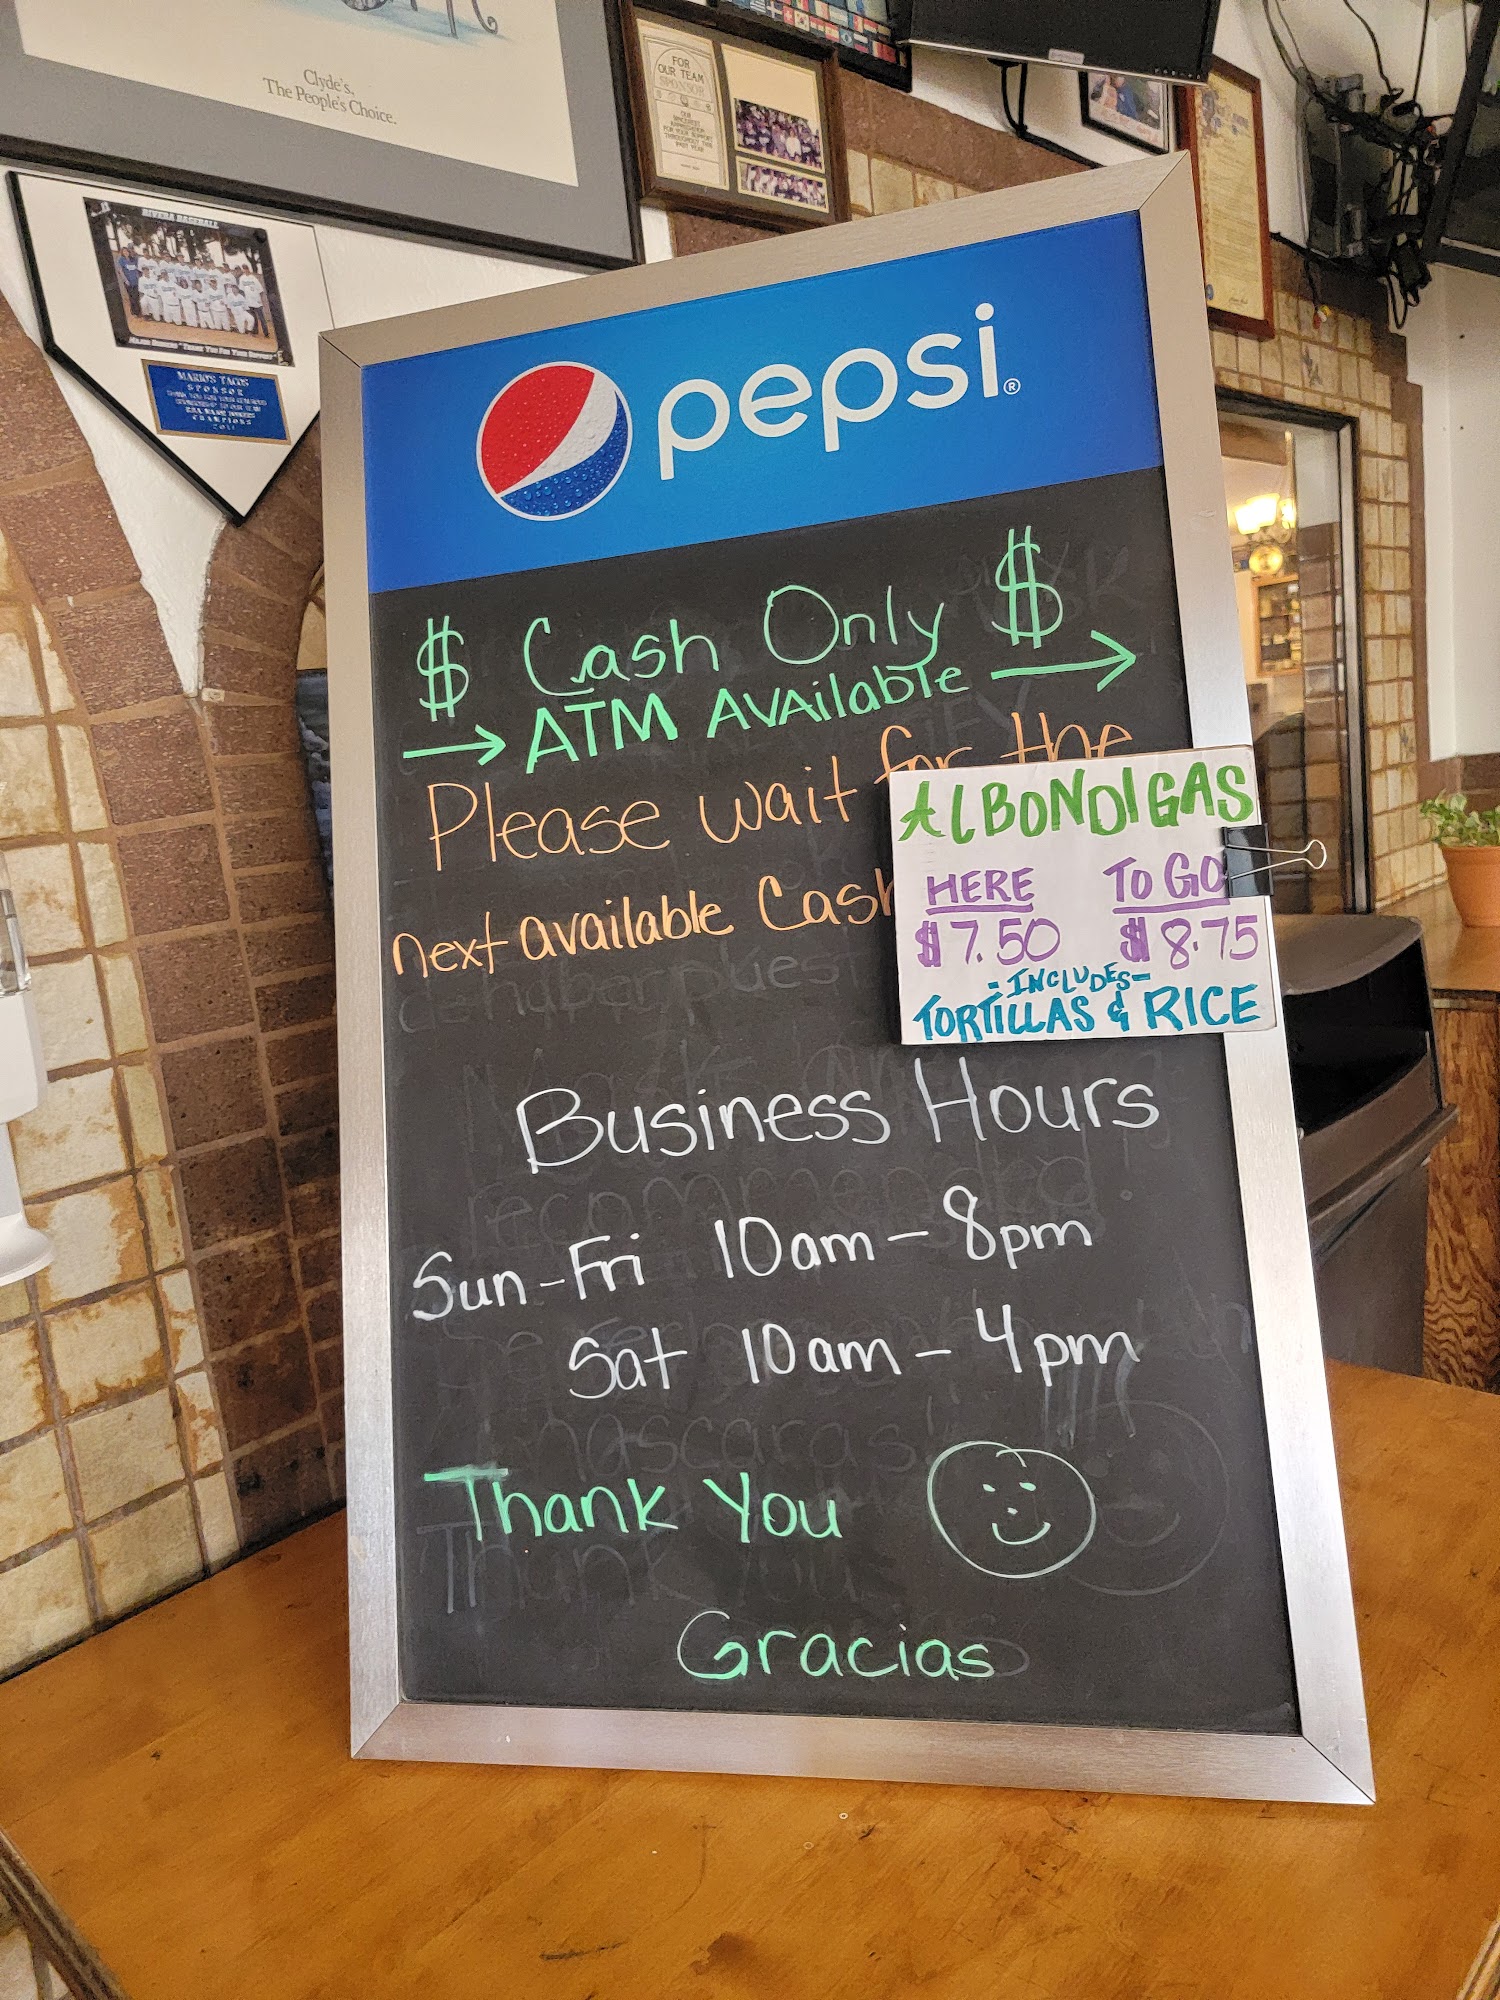 Clyde's,
The People's Choice.
FOR
OUR TEAM
SPONSOR
RIVERA BASEBALL
MARIO'S TACOS
SPONSOR
CHAMPIONS
pepsi®
$ Cash Only $
→ ATM AVAilable →
Please wait for the
next available Cash
ALBONDIGAS
HERE TO GO
$7.50 $8.75
-INCLUDES-
TORTILLAS & RICE
Business Hours
Sun-Fri 10am-8pm
Sat 10am-4pm
Thank You
Gracias